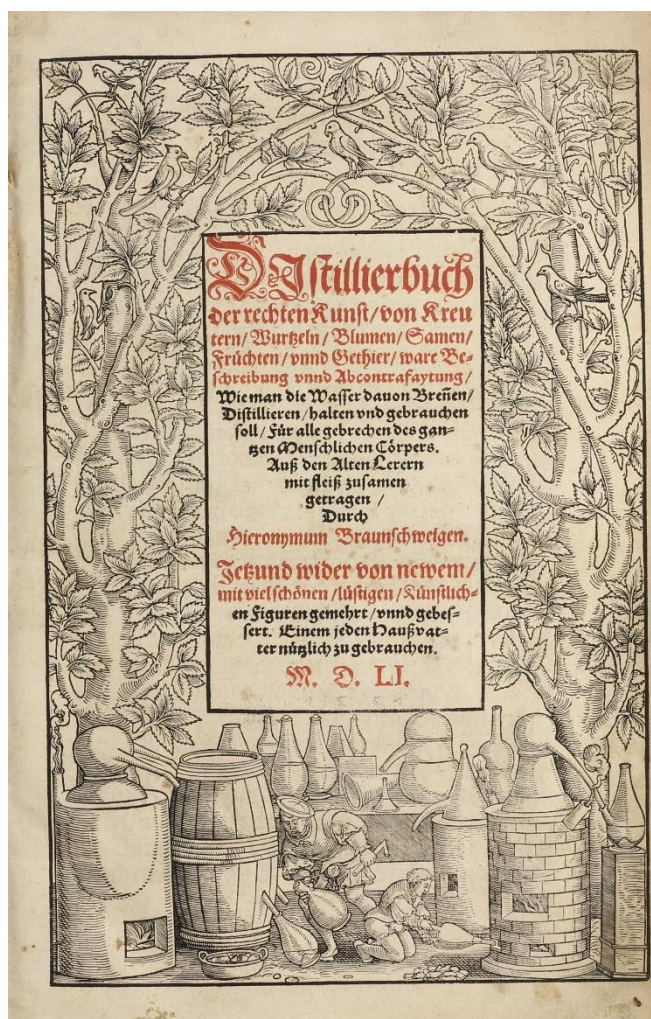 DIstillierbuch
der rechten Kunst/ von Kreu
tern/ Wurtzeln/ Blumen/ Samen/
Früchten/ vnnd Gethier/ ware Be-
schreibung vnnd Abcontrafaytung/
Wie man die Wasser dauon Breñen/
Distillieren/ halten vnd gebrauchen
soll/ Für alle gebrechen des gan-
tzen Menschlichen Cörpers.
Auß den Alten Lerern
mit fleiß zusamen
getragen/
Durch
Hieronymum Braunschweigen.
Jetzund wider von newem/
mit viel schönen/ lüstigen/ Künstlich-
en Figuren gemehrt/ vnnd gebes-
sert. Einem jeden Haußvat-
ter nützlich zu gebrauchen.
M. D. LI.